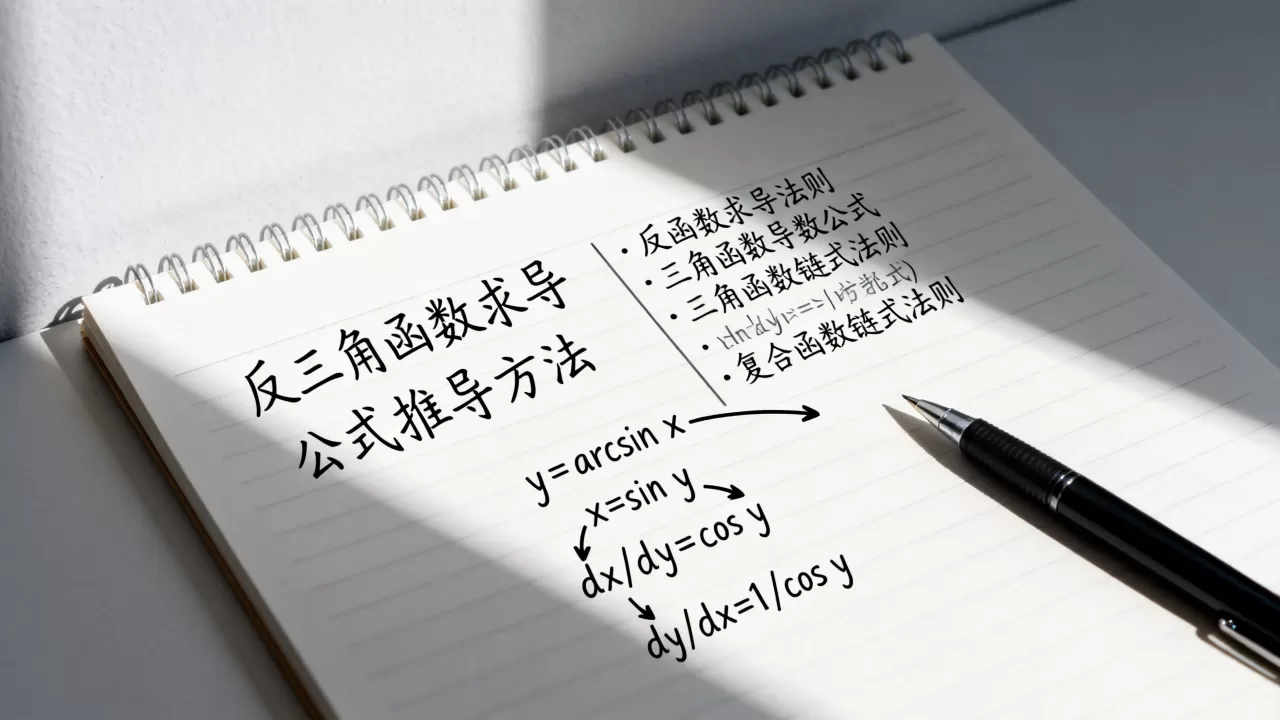 反三角函数求导
公式推导方法
· 反函数求导法则
· 三角函数导数公式
· 三角函数链式法则
· 复合函数链式法则
y=arcsin x
x=sin y
dx/dy=cos y
dy/dx=1/cos y